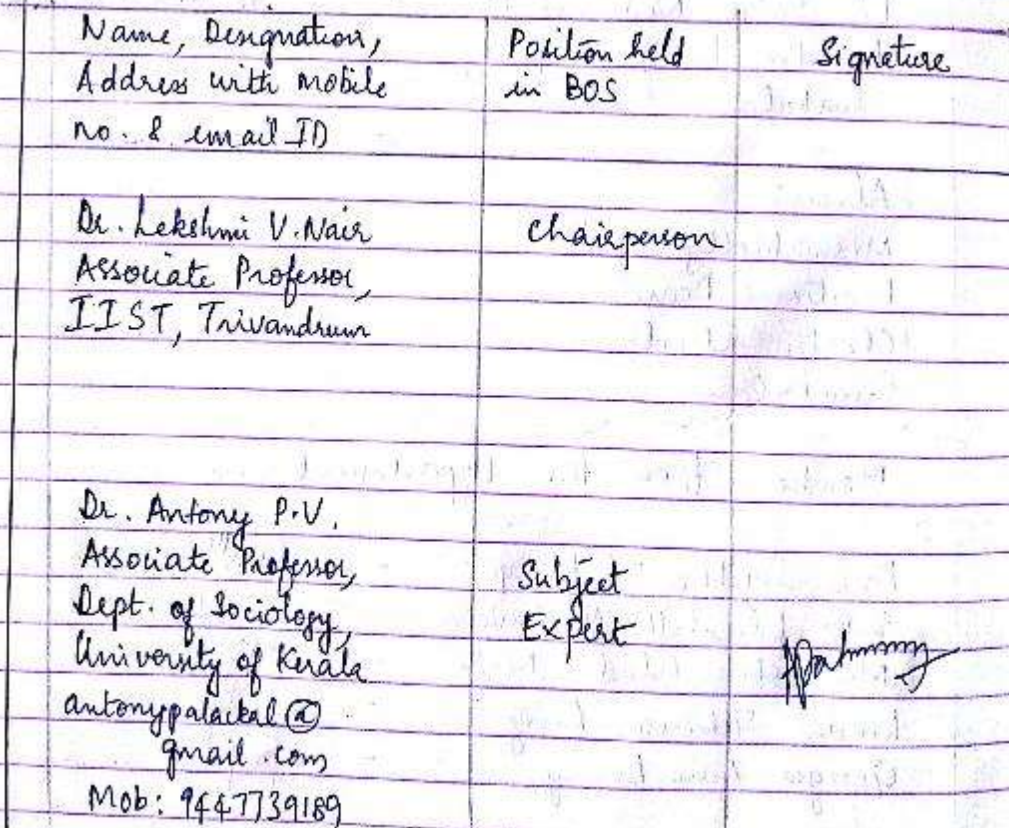 Name, Designation,
Address with mobile
no. & email ID
Position held
in BOS
Signature
Dr. Lekshmi V. Nair
Associate Professor,
IIST, Trivandrum
Chairperson
Dr. Antony P.V.
Associate Professor,
Dept. of Sociology,
University of Kerala
antonypalackal@
gmail.com
Mob: 9447739189
Subject
Expert